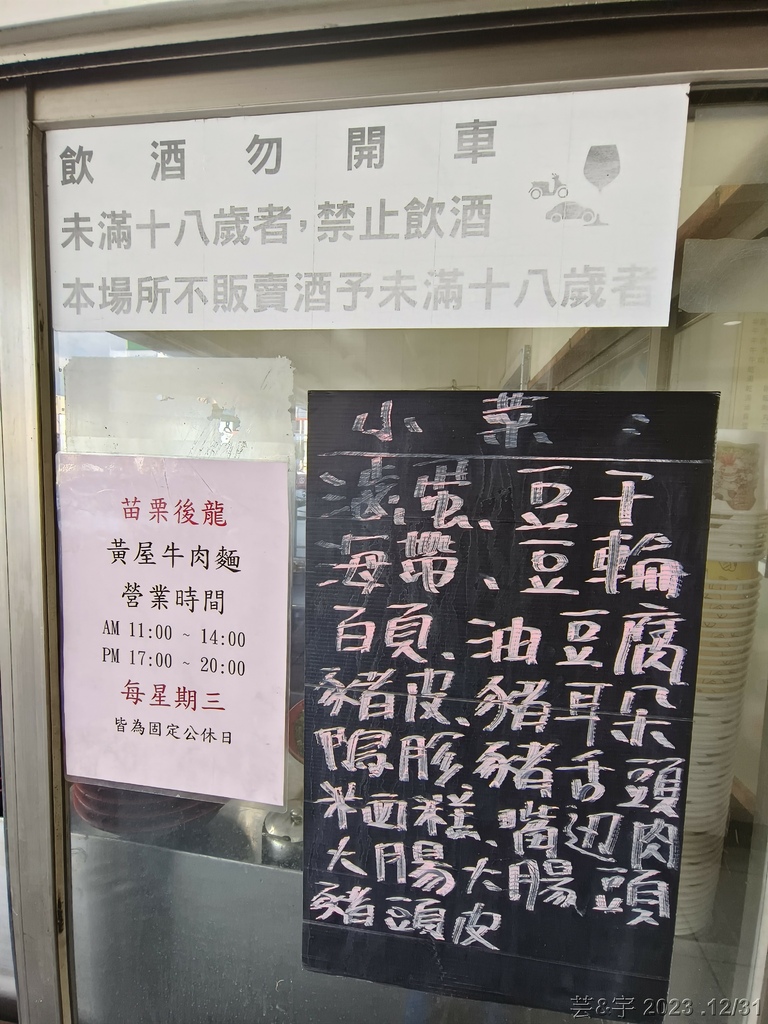 飲酒勿開車
未滿十八歲者，禁止飲酒
本場所不販賣酒予未滿十八歲者
苗栗後龍
黃屋牛肉麵
營業時間
AM 11:00 ~ 14:00
PM 17:00 ~ 20:00
每星期三
皆為固定公休日
小菜：
滷蛋、豆干
海帶、豆輪
百頁、油豆腐
豬皮、豬耳朵
鴨胗豬舌頭
米血糕、嘴边肉
大腸大腸頭
豬頭皮
芸&宇 2023 .12/31